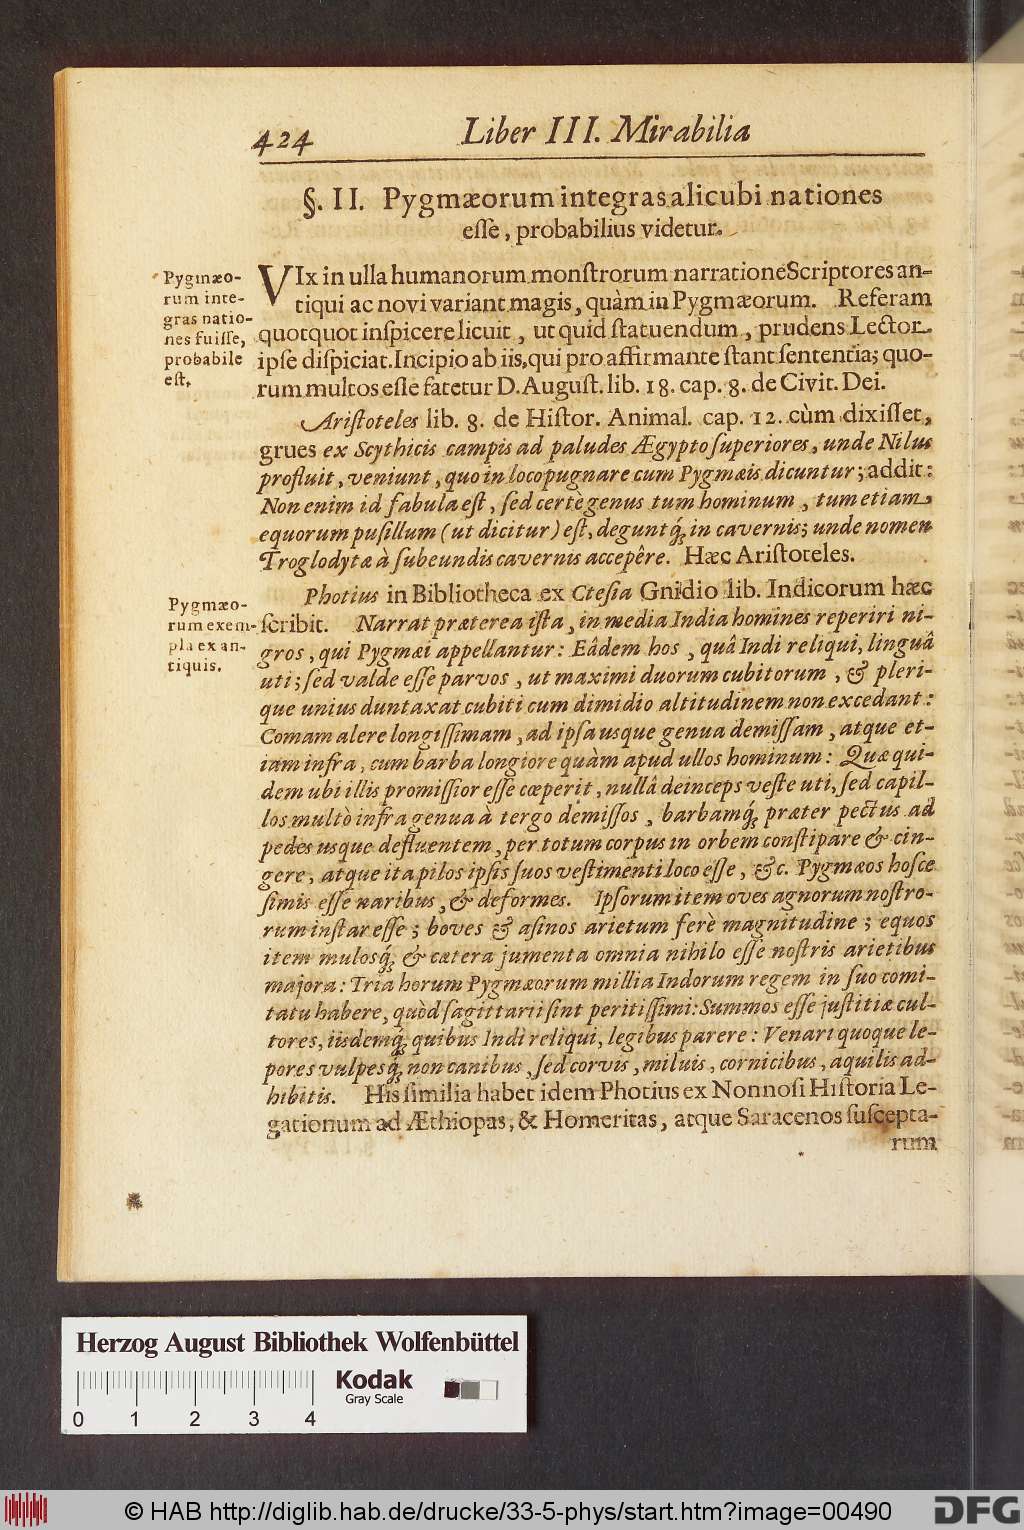 424
Liber III. Mirabilia
§. II. Pygmæorum integras alicubi nationes
eſſe, probabilius videtur.
Pygmæo-
rum inte-
gras natio-
nes fuiſſe,
probabile
eſt.
VIx in ulla humanorum monſtrorum narratione Scriptores an-
tiqui ac novi variant magis, quàm in Pygmæorum. Referam
quotquot inſpicere licuit, ut quid ſtatuendum, prudens Lector
ipſe diſpiciat. Incipio ab iis, qui pro affirmante ſtant ſententia; quo-
rum multos eſſe fatetur D. Auguſt. lib. 18. cap. 8. de Civit. Dei.
Ariſtoteles lib. 8. de Hiſtor. Animal. cap. 12. cùm dixiſſet,
grues ex Scythicis campis ad paludes Ægypto ſuperiores, unde Nilus
profluit, veniunt, quo in loco pugnare cum Pygmæis dicuntur; addit:
Non enim id fabula eſt, ſed certè genus tum hominum, tum etiam
equorum puſillum (ut dicitur) eſt, deguntq́; in cavernis; unde nomen
Troglodytæ à ſubeundis cavernis accepêre. Hæc Ariſtoteles.
Pygmæo-
rum exem-
pla ex an-
tiquis.
Photius in Bibliotheca ex Cteſia Gnidio lib. Indicorum hæc
ſcribit. Narrat præterea iſta, in media India homines reperiri ni-
gros, qui Pygmæi appellantur: Eâdem hos, quâ Indi reliqui, linguâ
uti; ſed valde eſſe parvos, ut maximi duorum cubitorum, & pleri-
que unius duntaxat cubiti cum dimidio altitudinem non excedant:
Comam alere longiſſimam, ad ipſa usque genua demiſſam, atque et-
iam infra, cum barba longiore quàm apud ullos hominum: Quæ qui-
dem ubi illis promiſſior eſſe cœperit, nullâ deinceps veſte uti, ſed capil-
los multò infra genua à tergo demiſſos, barbamq́; præter pectus ad
pedes usque defluentem, per totum corpus in orbem conſtipare & cin-
gere, atque ita pilos ipſis ſuos veſtimenti loco eſſe, &c. Pygmæos hoſce
ſimis eſſe naribus, & deformes. Ipſorum item oves agnorum noſtro-
rum inſtar eſſe; boves & aſinos arietum ferè magnitudine; equos
item mulosq́; & cætera jumenta omnia nihilo eſſe noſtris arietibus
majora: Tria horum Pygmæorum millia Indorum regem in ſuo comi-
tatu habere, quòd ſagittarii ſint peritiſſimi: Summos eſſe juſtitiæ cul-
tores, iisdemq́; quibus Indi reliqui, legibus parere: Venari quoque le-
pores vulpesq́; non canibus, ſed corvis, miluis, cornicibus, aquilis ad-
hibitis. His ſimilia habet idem Photius ex Nonnoſi Hiſtoria Le-
gationum ad Æthiopas, & Homeritas, atque Saracenos ſuſcepta-
rum
Herzog August Bibliothek Wolfenbüttel
Kodak
Gray Scale
0 1 2 3 4
© HAB http://diglib.hab.de/drucke/33-5-phys/start.htm?image=00490
DFG